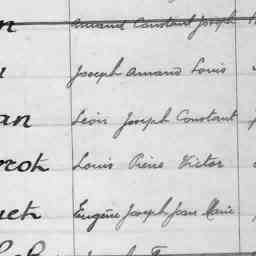 n Amand Constant Joseph
Joseph Amand Louis
an Léon Joseph Constant
Louis Pierre Victor
Eugène Joseph Jean Marie